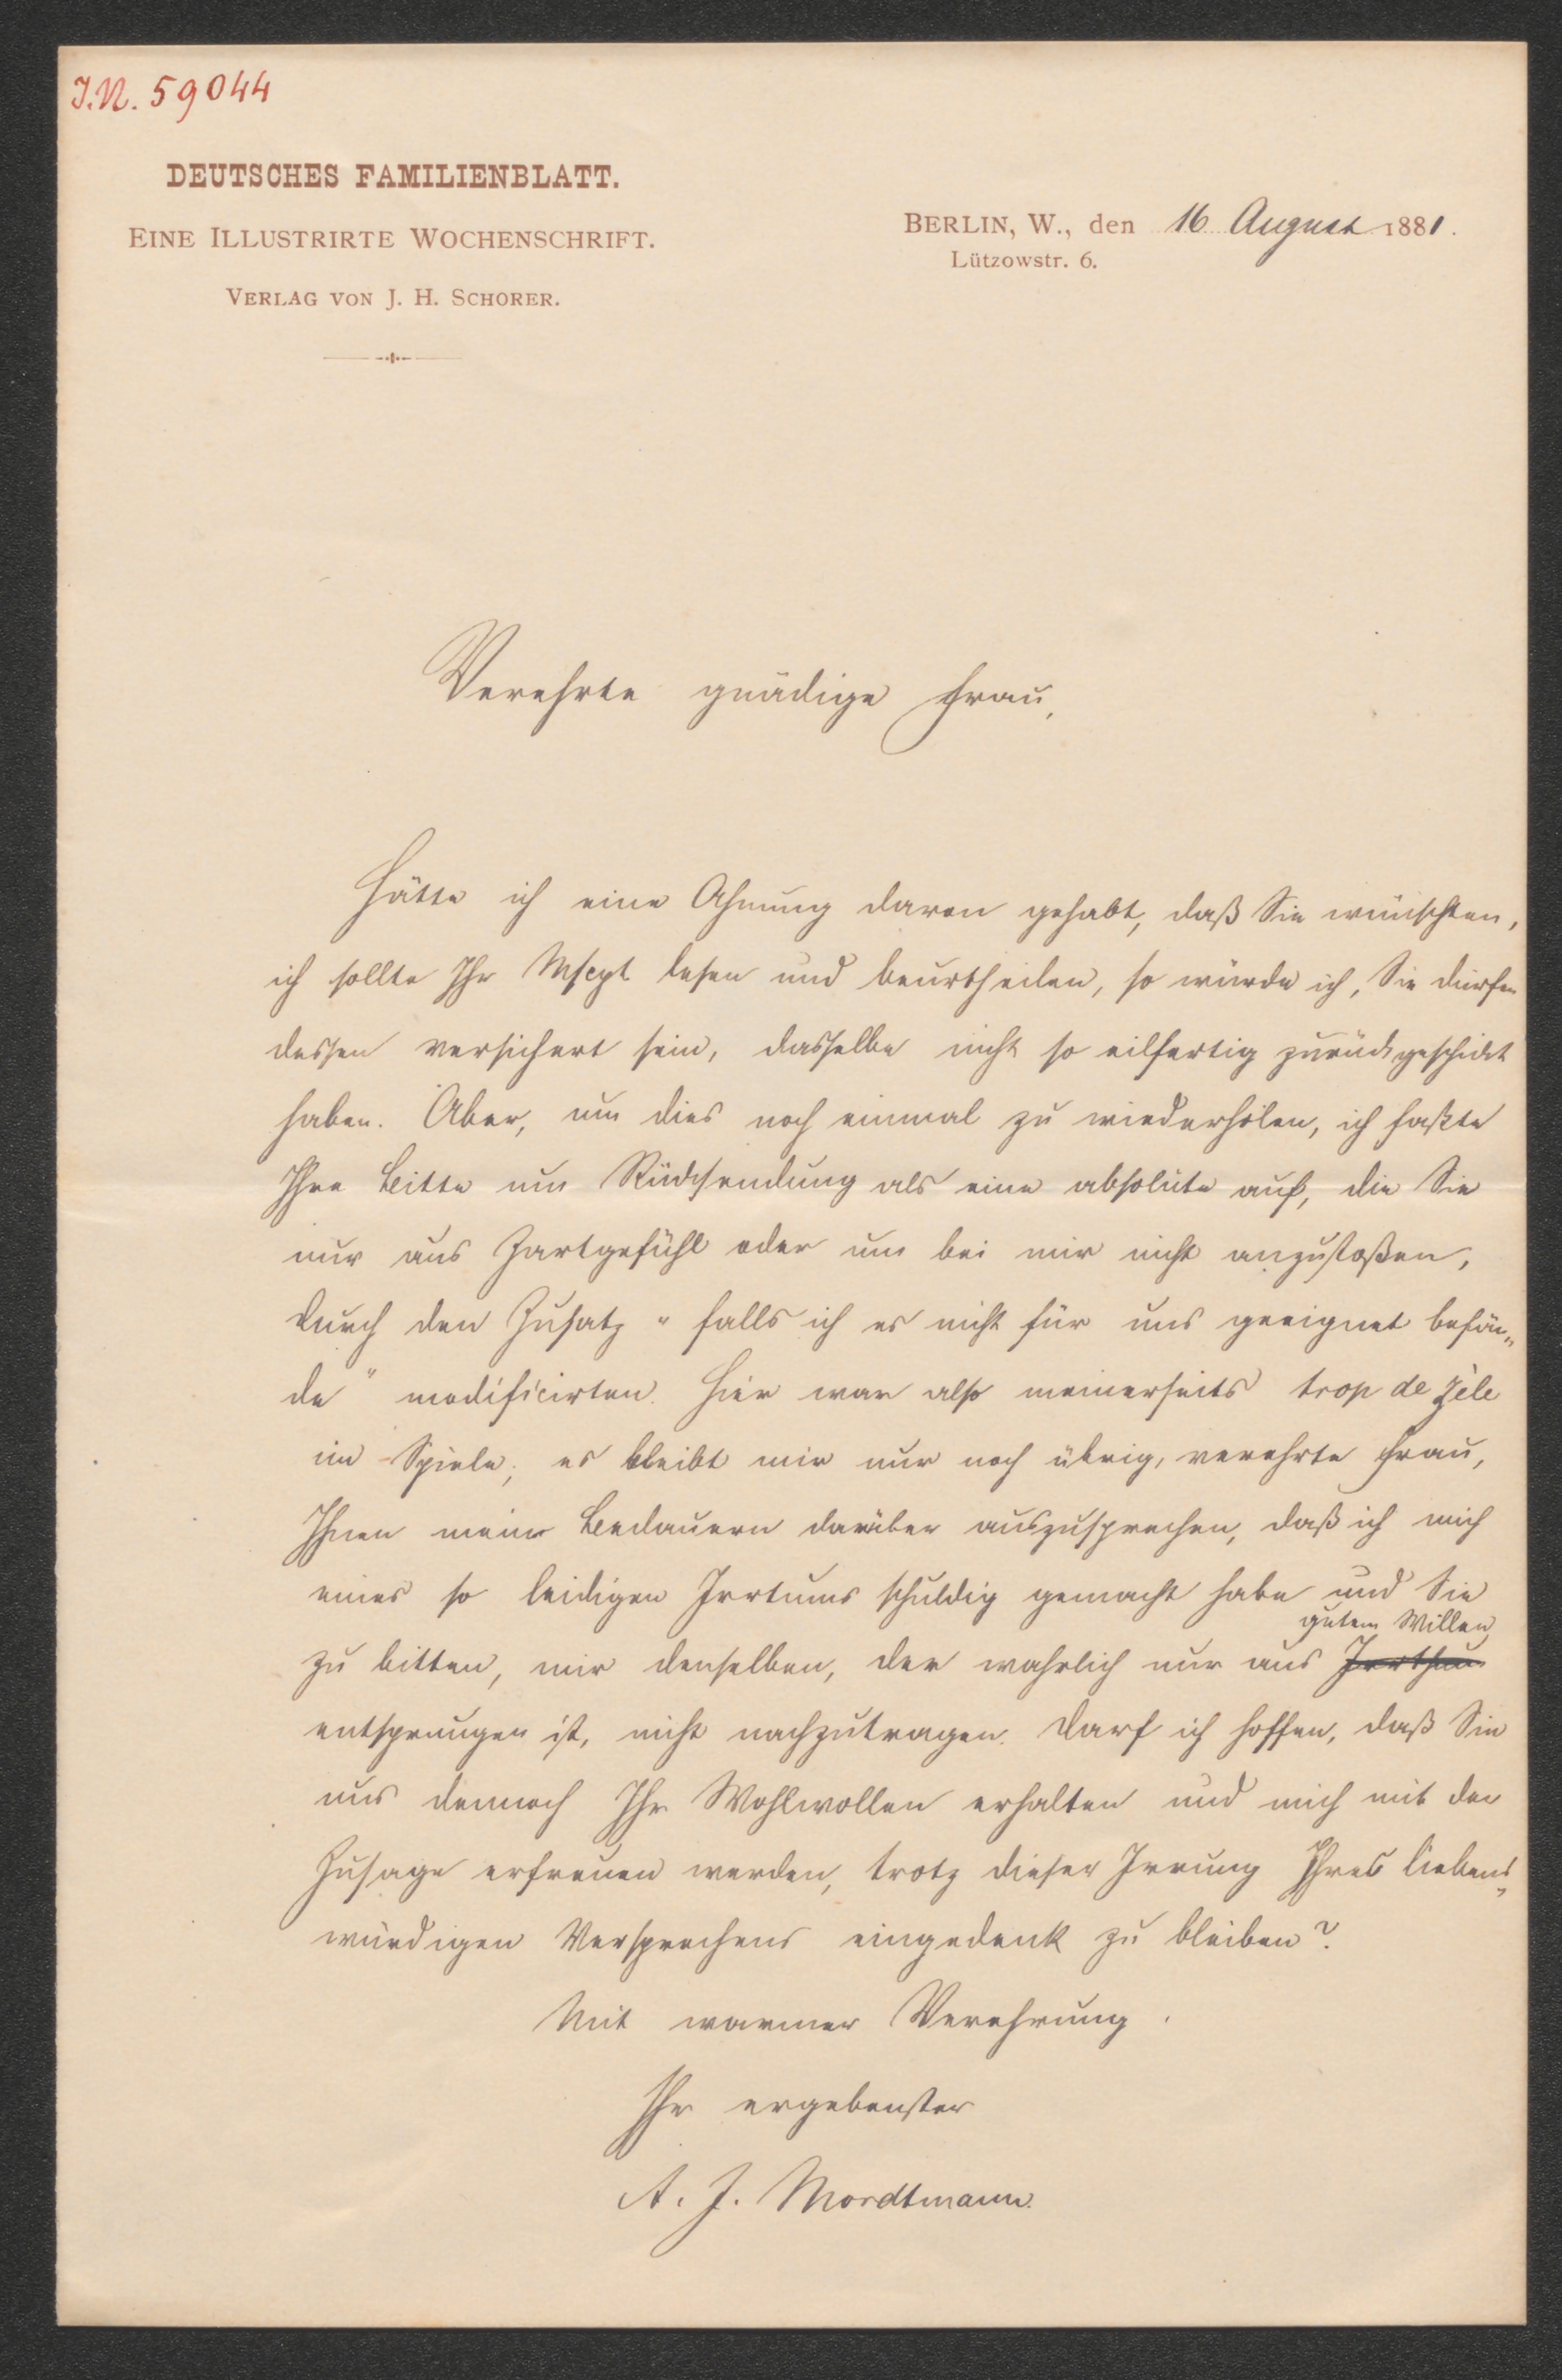 J.N. 59044
DEUTSCHES FAMILIENBLATT.
EINE ILLUSTRIRTE WOCHENSCHRIFT.
VERLAG VON J. H. SCHORER.
BERLIN, W., den 16 August 1881.
Lützowstr. 6.
Verehrte gnädige Frau,
Hätte ich eine Ahnung davon gehabt, daß Sie wünschten,
ich sollte Ihr Mscpt lesen und beurtheilen, so würde ich, Sie dürfen
dessen versichert sein, dasselbe nicht so eilfertig zurückgeschickt
haben. Aber, um dies noch einmal zu wiederholen, ich faßte
Ihre Bitte um Rücksendung als eine absolute auf, die Sie
nur aus Zartgefühl oder um bei mir nicht anzustoßen,
durch den Zusatz "falls ich es nicht für uns geeignet befän-
de" modificirten. Hier war also meinerseits trop de zèle
im Spiele; es bleibt mir nur noch übrig, verehrte Frau,
Ihnen mein Bedauern darüber auszusprechen, daß ich mich
eines so leidigen Irrtums schuldig gemacht habe und Sie
gutem Willen
zu bitten, mir denselben, der wahrlich nur aus Irrthum
entsprungen ist, nicht nachzutragen. Darf ich hoffen, daß Sie
uns dennoch Ihr Wohlwollen erhalten und mich mit der
Zusage erfreuen werden, trotz dieser Irrung Ihres liebens-
würdigen Versprechens eingedenk zu bleiben?
Mit warmer Verehrung
Ihr ergebenster
A. J. Mordtmann.